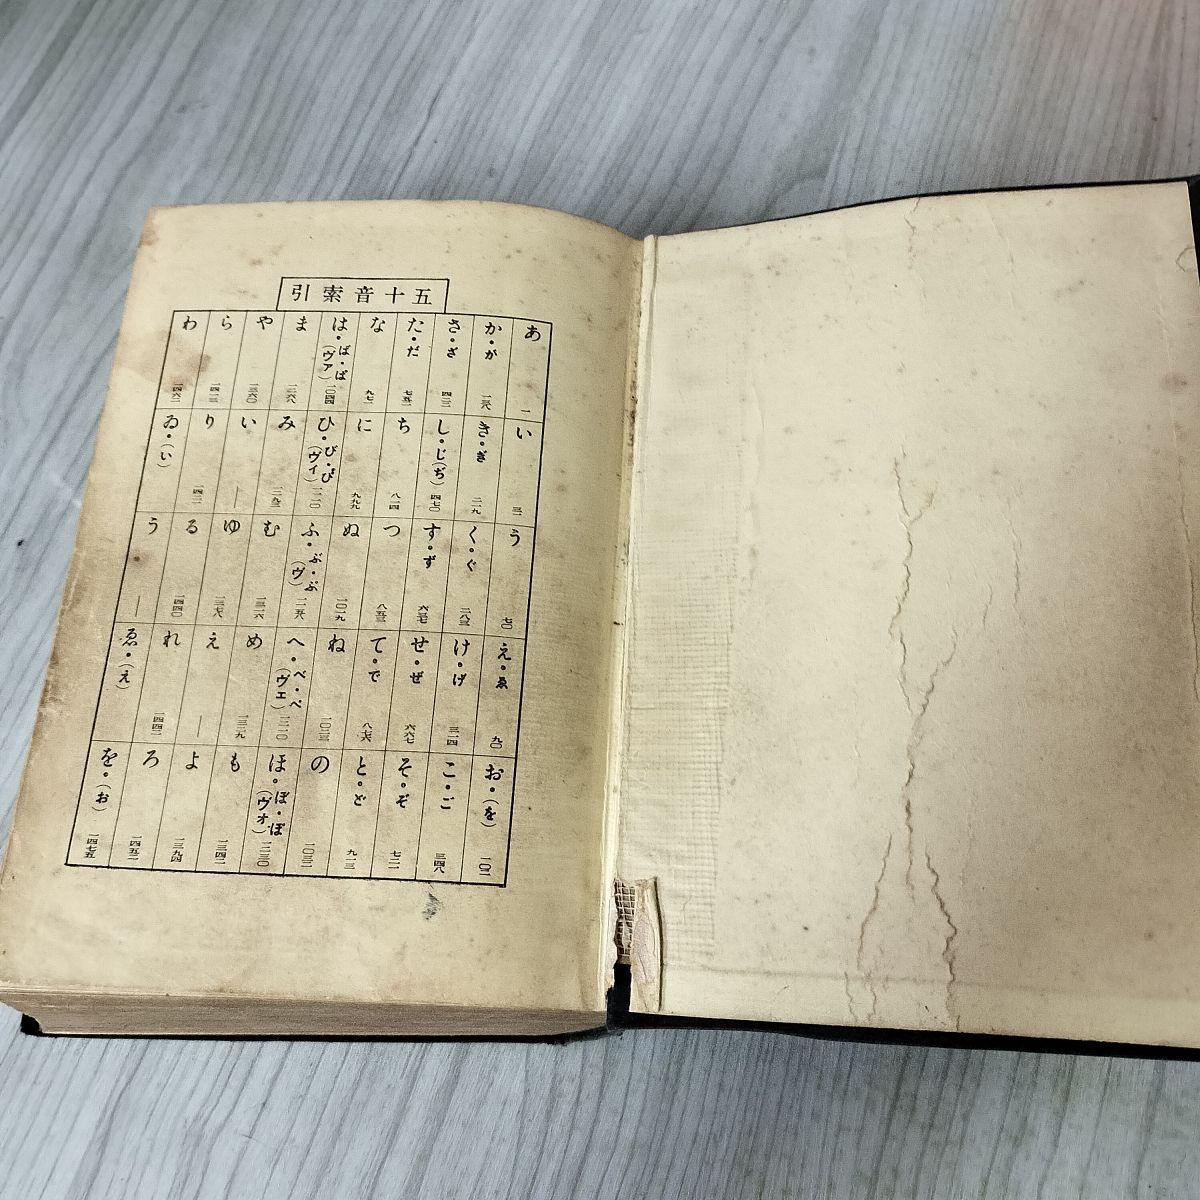 五十音索引
あ 一
い 三一
う 七〇
え・ゑ 九〇
お・(を) 一〇二
か・が
き・ぎ 二一九
く・ぐ 二八三
け・げ 三一四
こ・ご 三四八
さ・ざ
し・じ(ぢ) 四七〇
す・ず
せ・ぜ 六六七
そ・ぞ 七二一
た・だ
ち 八一四
つ 八五三
て・で 八七六
と・ど 九一三
な 九七一
に 九九九
ぬ 一〇一九
ね
の
は・ば・ぱ(ヴァ) 一〇四四
ひ・び・ぴ(ヴィ) 一一二〇
ふ・ぶ・ぷ(ヴ)
へ・べ・ぺ(ヴェ)
ほ・ぼ・ぽ(ヴオ)
ま 一二六八
み
む 一三一六
め 一三二九
も 一三四二
や 一三六〇
い ―
ゆ 一三七八
え ―
よ 一三九四
ら
り
る 一四四〇
れ 一四四二
ろ
わ 一四六二
ゐ・(い)
う ―
ゑ・(え)
を・(お) 一四七五